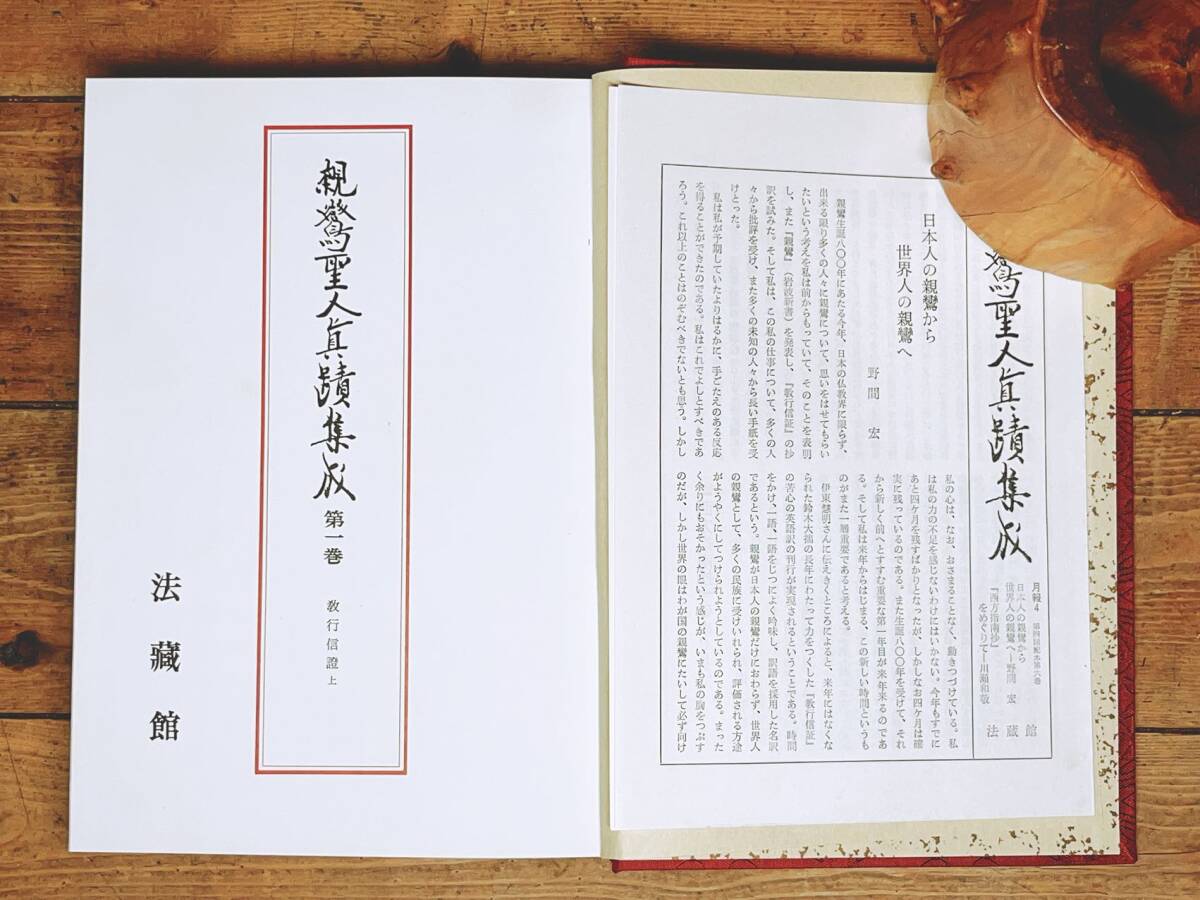 親鸞聖人眞蹟集成 第一巻 教行信證 上
法藏館
鸞聖人眞蹟集成
月報4 第四回配本第六巻
日本人の親鸞から
世界人の親鸞へ―野間 宏
『西方指南抄』
をめぐりて―川瀬和敬
法藏館
日本人の親鸞から
世界人の親鸞へ
野間 宏
親鸞生誕八〇〇年にあたる今年、日本の仏教界に限らず、
出来る限り多くの人々に親鸞について、思いをはせてもらい
たいという考えを私は前からもっていて、そのことを表明
し、また『親鸞』（岩波新書）を発表し、『教行信証』の抄
訳を試みた。そして私は、この私の仕事について、多くの人
々から批評を受け、また多くの未知の人々から長い手紙を受
けとった。
私は私が予期していたよりはるかに、手ごたえのある反応
を得ることができたのである。私はこれでよしとすべきであ
ろう。これ以上のことはのぞむべきでないとも思う。しかし
私の心は、なお、おさまることなく、動きつづけている。私
は私の力の不足を感じないわけにはいかない。今年もすでに
あと四ケ月を残すばかりとなったが、しかしなお四ケ月は確
実に残っているのである。また生誕八〇〇年を受けて、それ
から新しく前へとすすむ重要な第一年目が来年来るのであ
る。そして私は来年からはじまる、この新しい時間というも
のがまた一層重要であると考える。
伊東慧明さんに伝えきくところによると、来年にはなくな
られた鈴木大拙の長年にわたって力をつくした『教行信証』
の苦心の英語訳の刊行が実現されるということである。時間
をかけ、一語、一語をじつによく吟味し、訳語を採用した名訳
であるという。親鸞が日本人の親鸞だけにおわらず、世界人
の親鸞として、多くの民族に受けいれられ、評価される方途
がようやくにしてつけられようとしているのである。まった
く余りにもおそかったという感じが、いまも私の胸をつぶす
のだが、しかし世界の眼はわが国の親鸞にたいして必ず向け